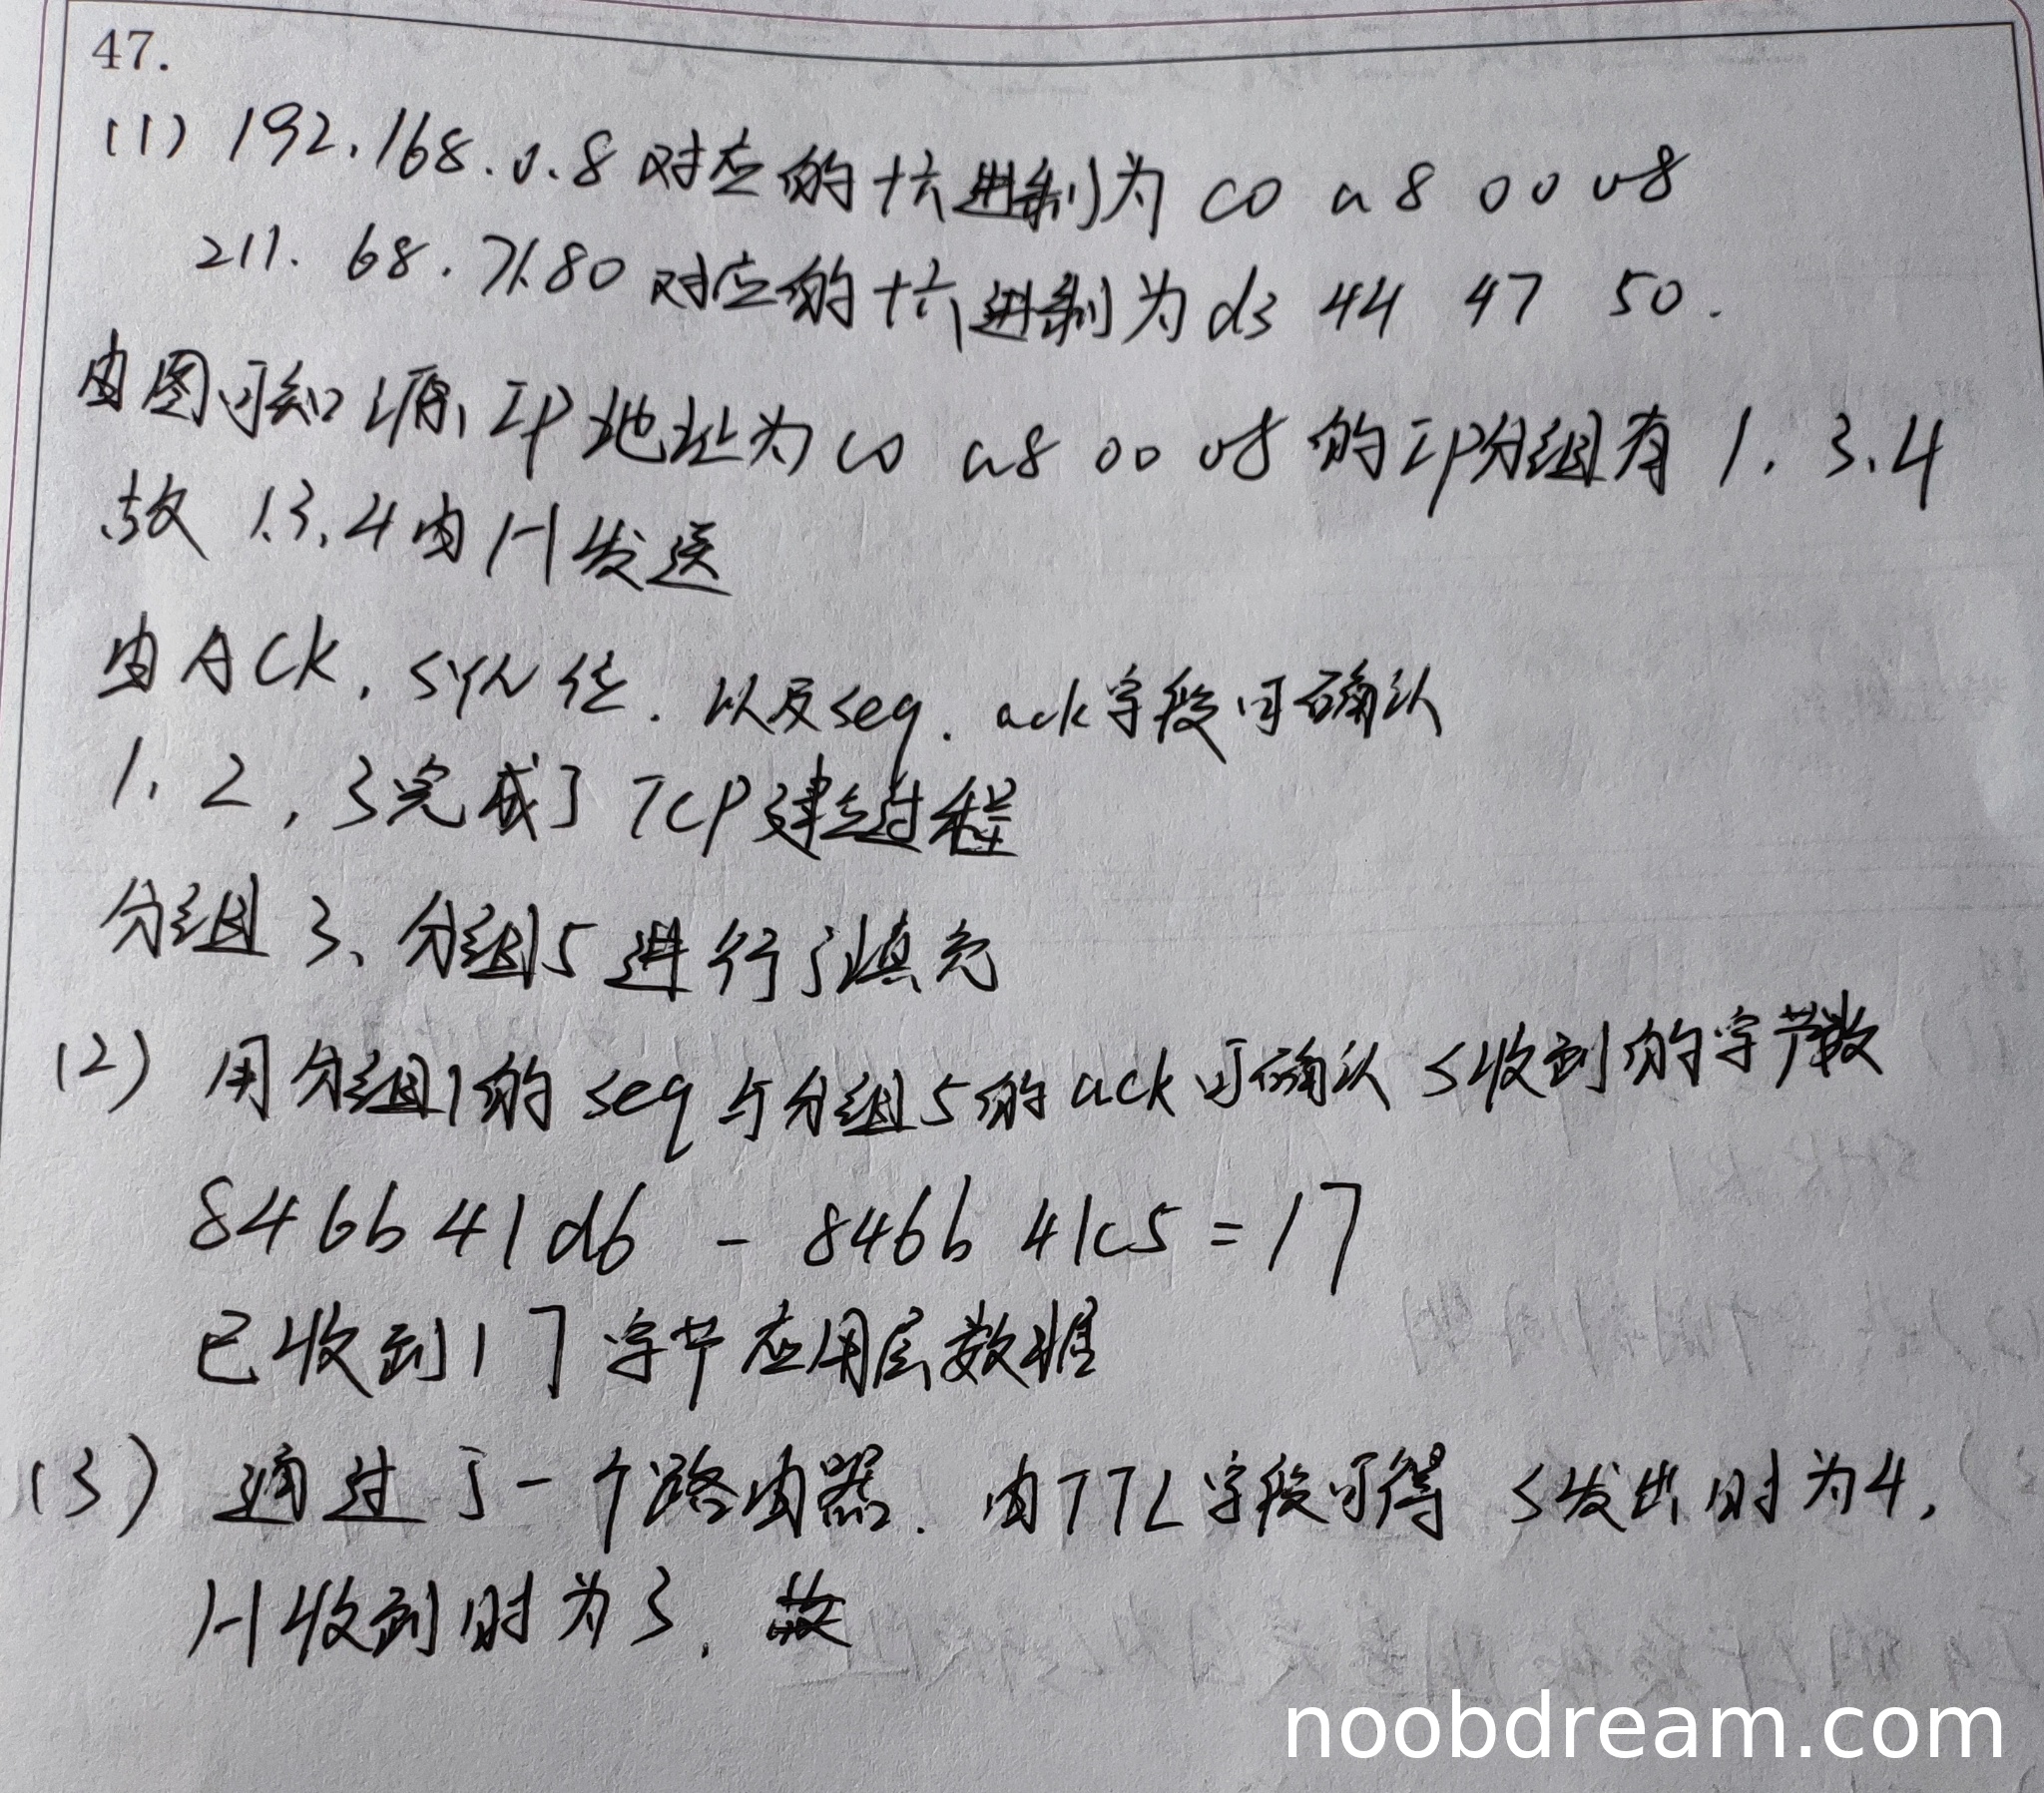 47.
(1) 192.168.0.8 对应的十六进制为 c0 a8 00 08
211.68.71.80 对应的十六进制为 d3 44 47 50.
由图可知源IP地址为 c0 a8 00 08 的IP分组有 1. 3. 4
故 1.3.4 由H发送
由ACK, SYN位. 以及seq. ack字段可确认
1. 2, 3完成了 TCP建立过程
分组 3、分组5 进行了填充
(2) 用分组1的 seq 与分组5的 ack 可确认 S收到的字节数
846b 41d6 - 846b 41c5 = 17
已收到17字节应用层数据
(3) 通过了一个路由器. 由TTL字段可得 S发出时为4,
H收到时为3. 故
noobdream.com